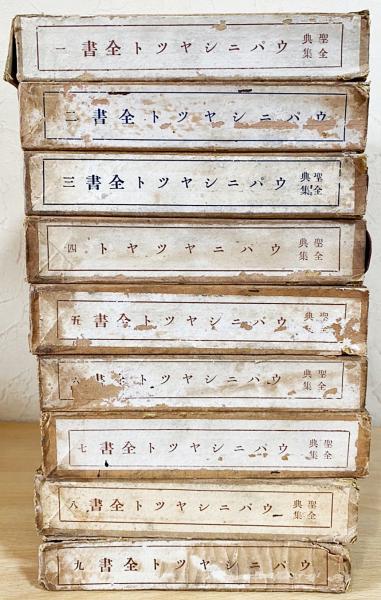 聖典全集 ウパニシヤツト全書 一
ウパニシヤツト全書 二
聖典全集 ウパニシヤツト全書 三
聖典全集 ウパニシヤツト 四
聖典 ウパニシヤツト全書 五
聖典全集 ウパニシヤツト全書
聖典全集 ウパニシヤツト全書 七
聖典全集 ウパニシヤツト全書 八
ウパニシヤツト全書 九